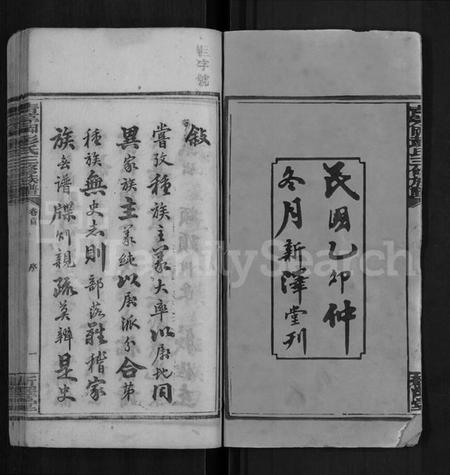 民國乙卯仲
冬月新澤堂刊
敘
嘗攷種族主義大率以廚地同
異家族主義純以廚派分合苐
種族無史志則部落難稽家
族無譜牒則親疏莫辨是史
卷首
序
一
FamilySearch